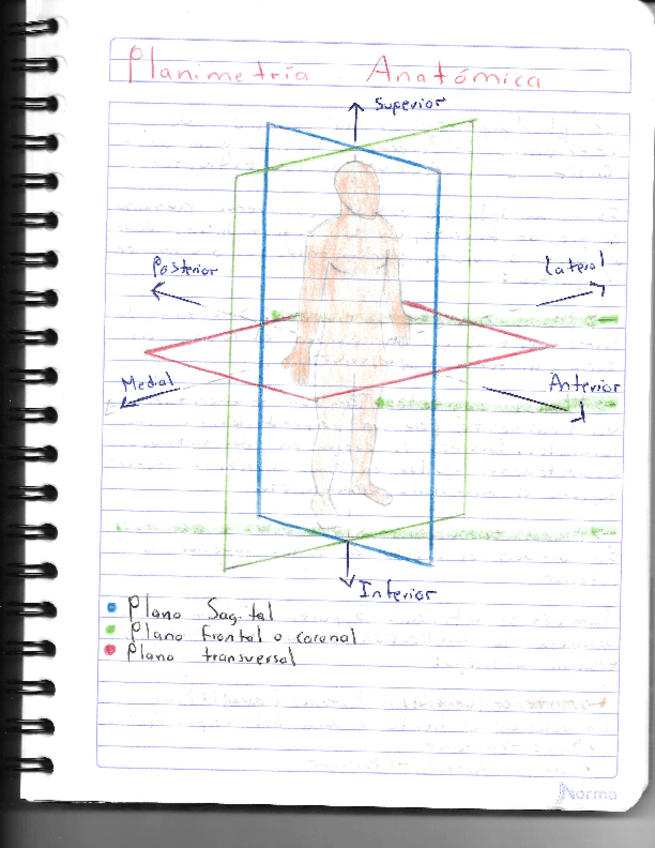 Planimetría Anatómica
Superior
Posterior
Lateral
Medial
Anterior
Inferior
Plano Sagital
Plano frontal o coronal
Plano transversal
Norma